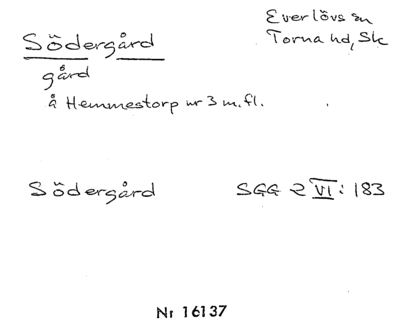 Everlövs sn
Södergård Torna hd, Sk
gård
å Hemmestorp nr 3 m.fl.
Södergård SGG 2 VI: 183
Nr 16137